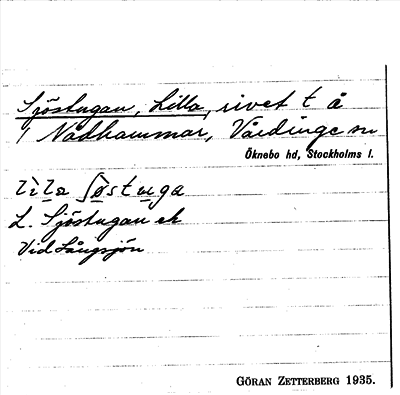 Sjöstugan, Lilla, rivet t å
/ Nådhammar, Vårdinge sn
Öknebo hd, Stockholms l.
lìla ʃøstuga
L. Sjöstugan ek
Vid Långsjön
GÖRAN ZETTERBERG 1935.